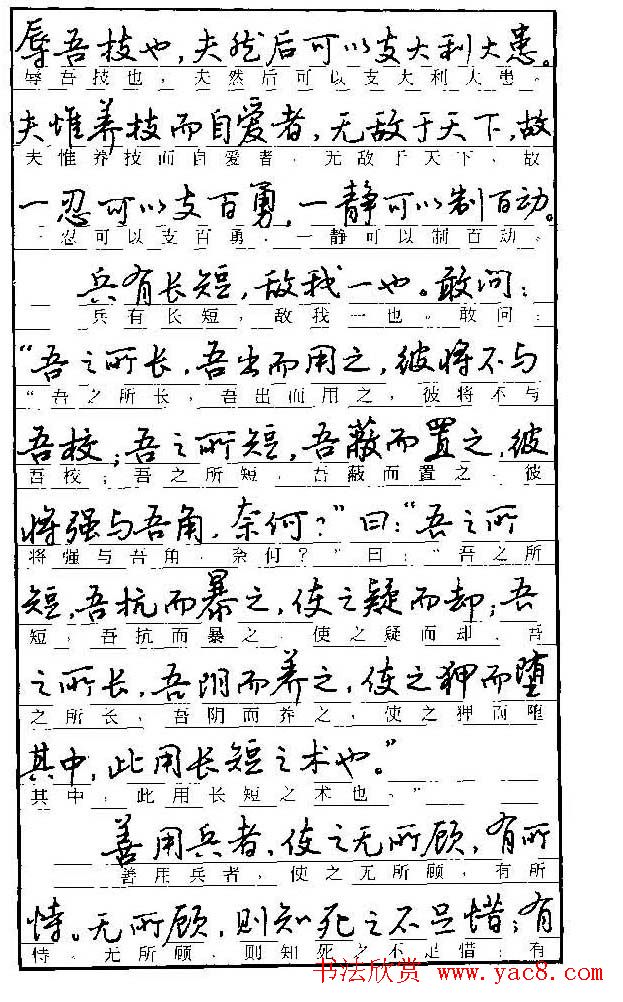 辱吾技也，夫然后可以支大利大患。
辱吾技也，夫然后可以支大利大患。
夫惟养技而自爱者，无敌于天下，故
夫惟养技而自爱者，无敌于天下，故
一忍可以支百勇，一静可以制百动。
一忍可以支百勇，一静可以制百动。
兵有长短，敌我一也。敢问：
兵有长短，敌我一也。敢问：
“吾之所长，吾出而用之，彼将不与
“吾之所长，吾出而用之，彼将不与
吾校；吾之所短，吾蔽而置之，彼
吾校；吾之所短，吾蔽而置之，彼
将强与吾角，奈何？”曰：“吾之所
将强与吾角，奈何？”曰：“吾之所
短，吾抗而暴之，使之疑而却；吾
短，吾抗而暴之，使之疑而却；吾
之所长，吾阴而养之，使之狎而堕
之所长，吾阴而养之，使之狎而堕
其中，此用长短之术也。”
其中，此用长短之术也。”
善用兵者，使之无所顾，有所
善用兵者，使之无所顾，有所
恃。无所顾，则知死之不足惜；有
恃。无所顾，则知死之不足惜；有
书法欣赏 www.yac8.com